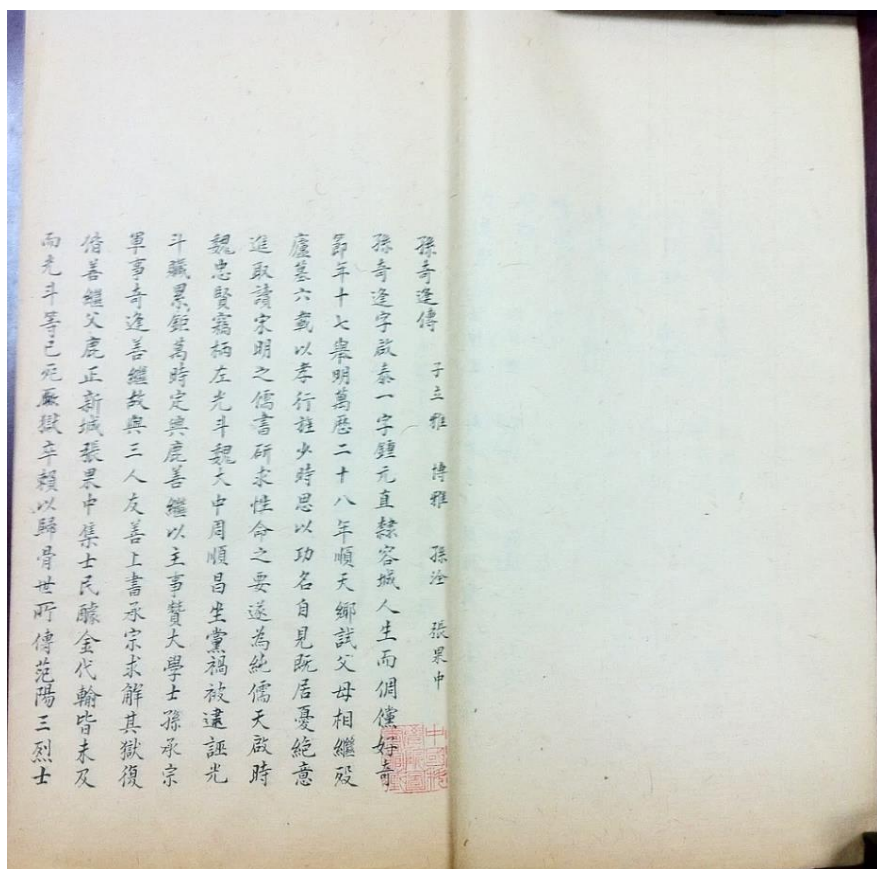 孫奇逢傳 子立雅 博雅 孫洤 張果中
孫奇逢字啟泰一字鍾元直隸容城人生而倜儻好奇
節年十七舉明萬歷二十八年順天鄉試父母相繼歿
廬墓六載以孝行旌少時思以功名自見既居憂絶意
進取讀宋明之儒書研求性命之要遂為純儒天啟時
魏忠賢竊柄左光斗魏大中周順昌坐黨禍被逮誣光
斗贓累鉅萬時定興鹿善繼以主事贊大學士孫承宗
軍事奇逢善繼故與三人友善上書承宗求解其獄復
偕善繼父鹿正新城張果中集士民醵金代輸皆未及
而光斗等已死厰獄卒賴以歸骨世所傳范陽三烈士